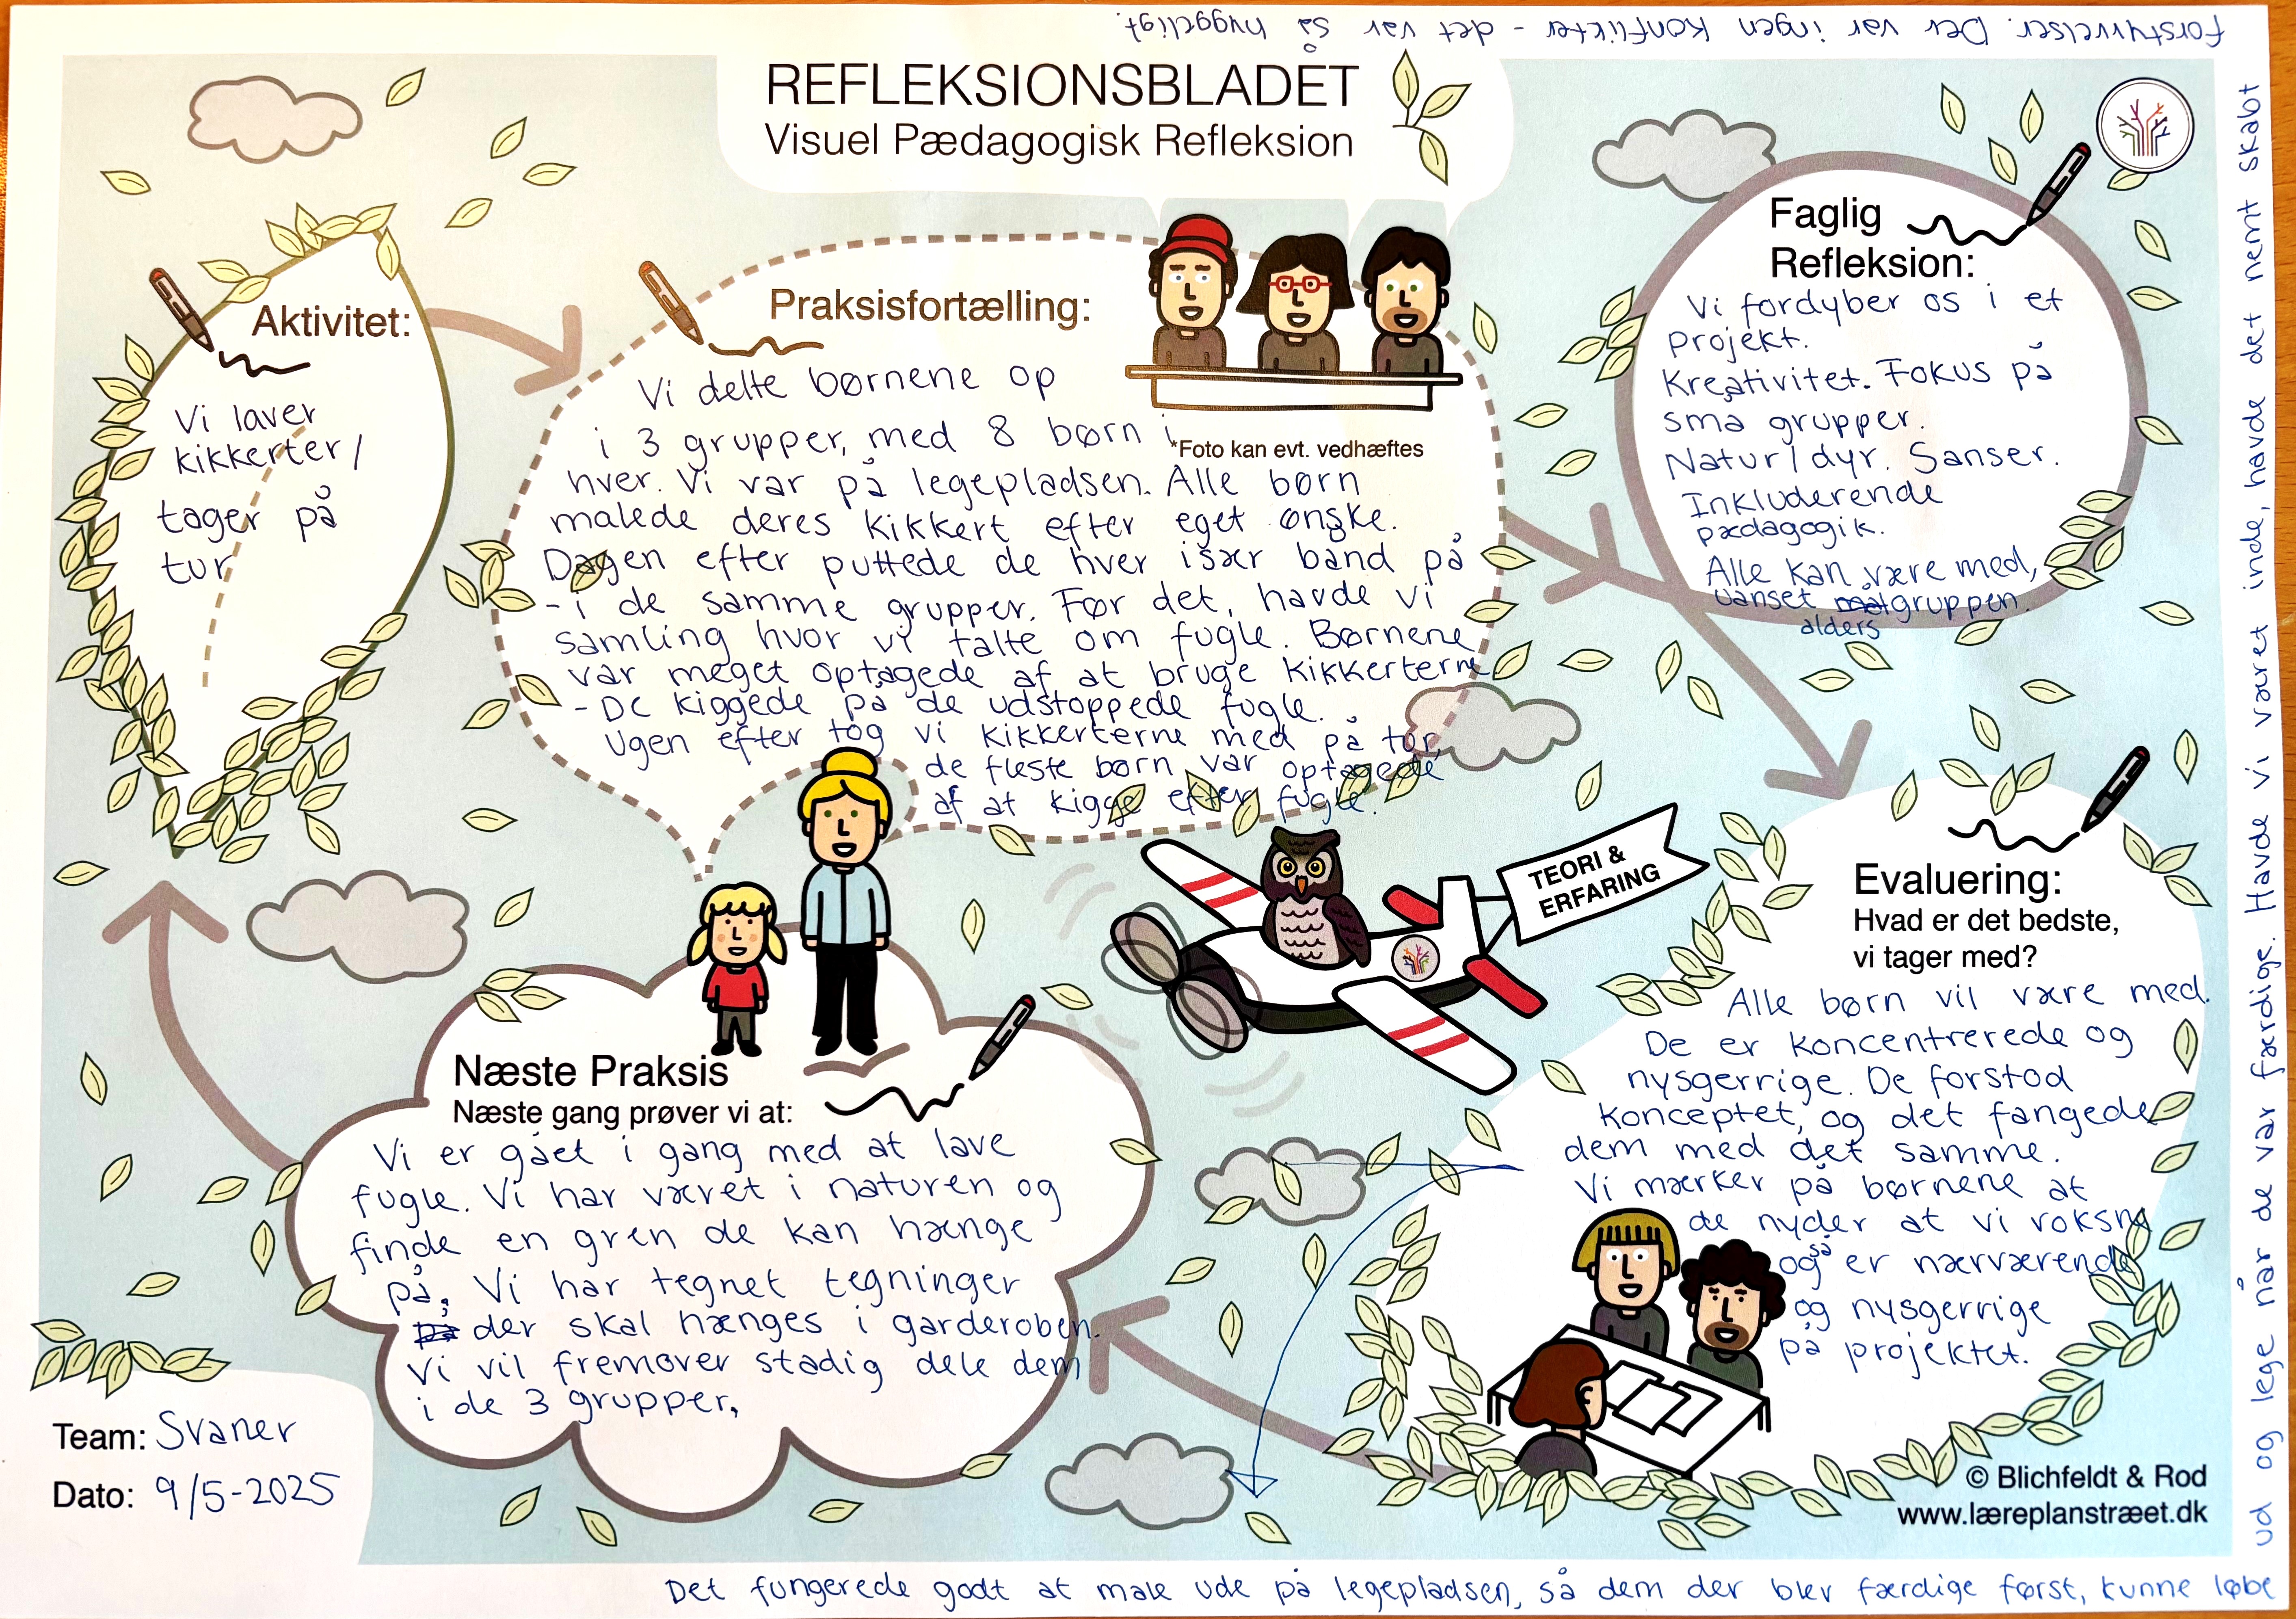 REFLEKSIONSBLADET
Visuel Pædagogisk Refleksion
Aktivitet:
Vi laver
kikkerter/
tager på
tur
Praksisfortælling:
*Foto kan evt. vedhæftes
Vi delte børnene op
i 3 grupper, med 8 børn i
hver. Vi var på legepladsen. Alle børn
malede deres kikkert efter eget ønske.
Dagen efter puttede de hver især bånd på
- i de samme grupper. Før det, havde vi
samling hvor vi talte om fugle. Børnene
var meget optagede af at bruge kikkerterne
- De kiggede på de udstoppede fugle.
Ugen efter tog vi kikkerterne med på tur,
de fleste børn var optagede
af at kigge efter fugle.
Faglig
Refleksion:
Vi fordyber os i et
projekt.
Kreativitet. Fokus på
små grupper.
Natur/dyr. Sanser.
Inkluderende
pædagogik.
Alle kan være med,
uanset gruppen.
alders
TEORI &
ERFARING
Evaluering:
Hvad er det bedste,
vi tager med?
Alle børn vil være med.
De er koncentrerede og
nysgerrige. De forstod
konceptet, og det fangede
dem med det samme.
Vi mærker på børnene at
de nyder at vi voksne
også er nærværende
og nysgerrige
på projektet.
Næste Praksis
Næste gang prøver vi at:
Vi er gået i gang med at lave
fugle. Vi har været i naturen og
finde en gren de kan hænge
på. Vi har tegnet tegninger
der skal hænges i garderoben.
Vi vil fremover stadig dele dem
i de 3 grupper.
Team: Svaner
Dato: 9/5-2025
© Blichfeldt & Rod
www.læreplanstræet.dk
Det fungerede godt at male ude på legepladsen, så dem der blev færdige først, kunne løbe
ud og lege når de var færdige. Havde vi været inde, havde det nemt skabt
forstyrrelser. Der var ingen konflikter - det var så hyggeligt.